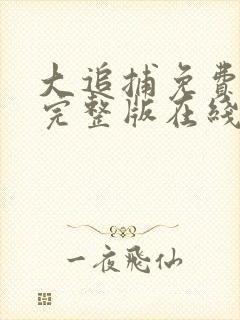 大追捕免費
完整版在綫
一夜飛仙